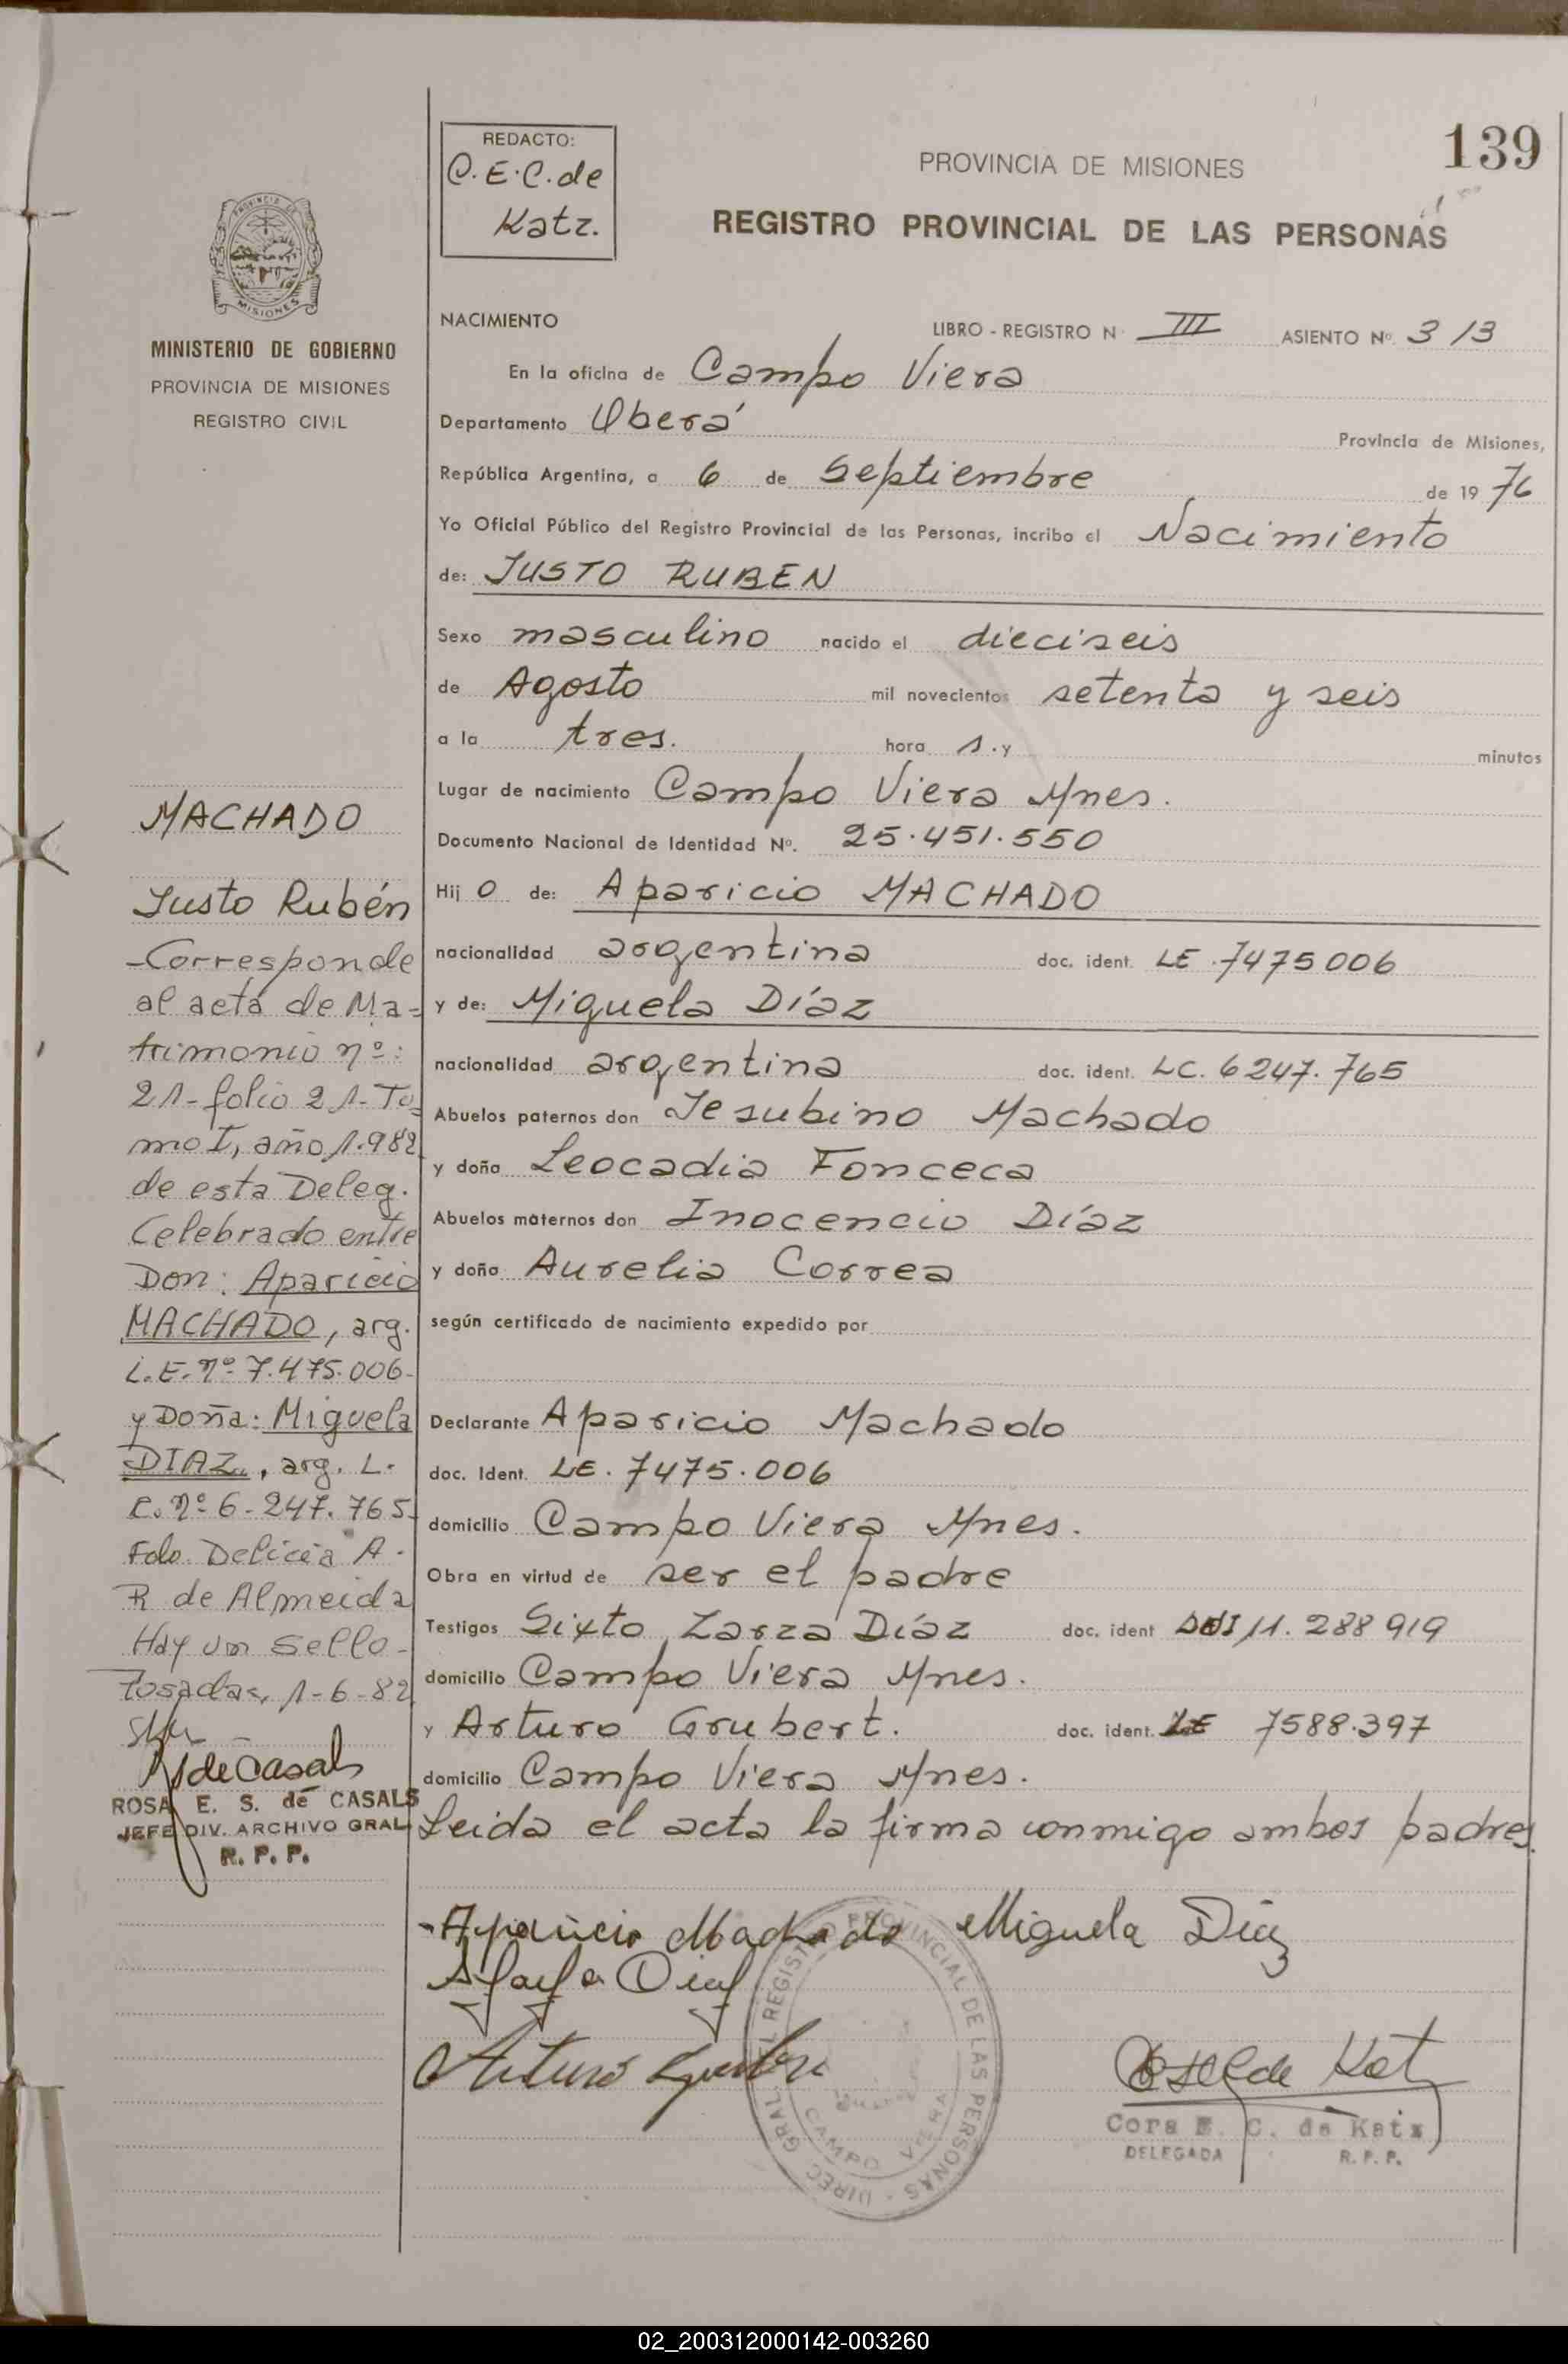 139
REDACTO:
C.E.C. de
Katz.
PROVINCIA DE MISIONES
REGISTRO PROVINCIAL DE LAS PERSONAS
MISIONES
MINISTERIO DE GOBIERNO
PROVINCIA DE MISIONES
REGISTRO CIVIL
NACIMIENTO LIBRO - REGISTRO N III ASIENTO Nº. 313
En la oficina de Campo Viera
Departamento Oberá Provincia de Misiones,
República Argentina, a 6 de Septiembre de 1976
Yo Oficial Público del Registro Provincial de las Personas, incribo el Nacimiento
de: JUSTO RUBEN
Sexo masculino nacido el dieciseis
de Agosto mil novecientos setenta y seis
a la tres. hora s.y minutos
Lugar de nacimiento Campo Viera Mnes.
Documento Nacional de Identidad Nº. 25.451.550
Hij o de: Aparicio MACHADO
nacionalidad argentina doc. ident. LE.7475006
y de: Miguela Díaz
nacionalidad argentina doc. ident. LC. 6247.765
Abuelos paternos don Jesubino Machado
y doña Leocadia Fonceca
Abuelos maternos don Inocencio Díaz
y doña Aurelia Correa
según certificado de nacimiento expedido por
Declarante Aparicio Machado
doc. Ident. LE. 7475.006
domicilio Campo Viera Mnes.
Obra en virtud de ser el padre
Testigos Sixto Zarza Díaz doc. ident DNI 11.288919
domicilio Campo Viera Mnes.
y Arturo Grubert. doc. ident. LE 7588.397
domicilio Campo Viera Mnes.
Leida el acta la firma conmigo ambos padres.
MACHADO
Justo Rubén
-Corresponde
al acta de Ma=
trimonio nº:
21-folio 21-To=
mo I, año 1.982
de esta Deleg.
Celebrado entre
Don: Aparicio
MACHADO, arg.
L.E. nº 7.475.006-
y Doña: Miguela
DIAZ, arg. L.
C. nº 6-247.765-
Fdo. Delicia A.
R de Almeida
Hay un sello-
Posadas, 1-6-82
de Casals
ROSA E. S. de CASALS
JEFE DIV. ARCHIVO GRAL
R. P. P.
Aparicio Machado Miguela Diaz
Arturo
DIREC. GRAL. DEL REGISTRO PROVINCIAL DE LAS PERSONAS
CAMPO VIERA
de Katz
Cora E. C. de Katz
DELEGADA R. P. P.
02_200312000142-003260